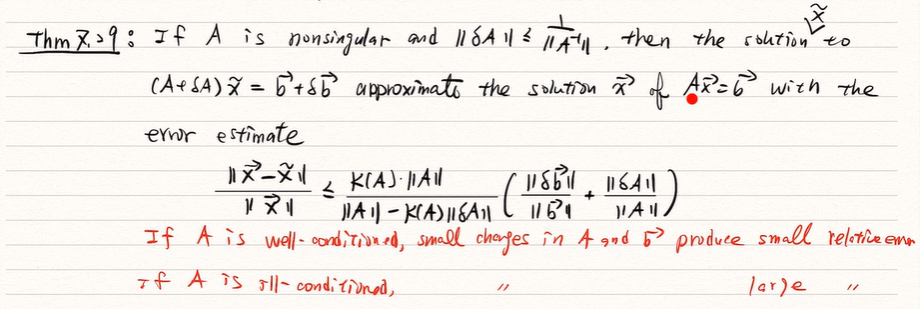 Thm 7.29: If A is nonsingular and ||δA|| ≤ 1/||A⁻¹||, then the solution x̃ to
(A+δA)x̃ = b⃗+δb⃗ approximate the solution x⃗ of Ax⃗=b⃗ with the
error estimate
||x⃗-x̃||/||x⃗|| ≤ K(A)·||A||/(||A||-K(A)||δA||) (||δb⃗||/||b⃗|| + ||δA||/||A||)
If A is well-conditioned, small changes in A and b⃗ produce small relative error
If A is ill-conditioned, " large "